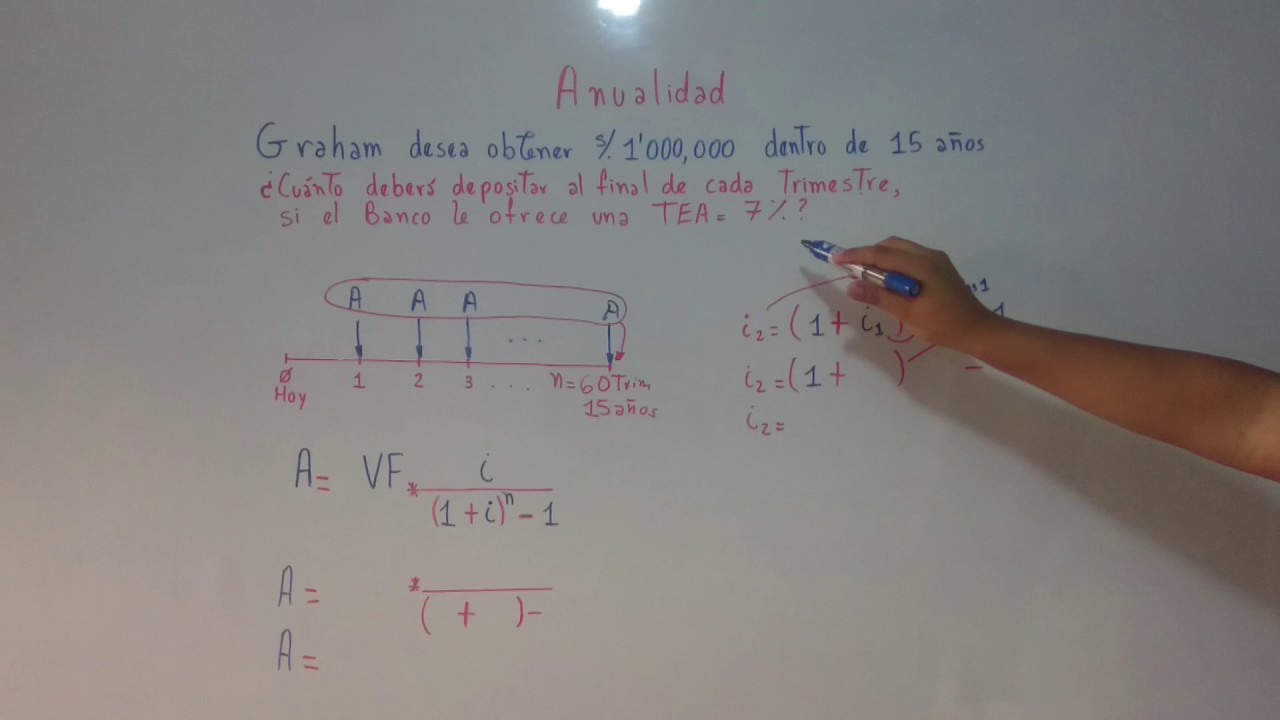 Anualidad
Graham desea obtener S/. 1'000,000 dentro de 15 años
¿Cuánto deberá depositar al final de cada Trimestre,
si el Banco le ofrece una TEA= 7%?
A A A A
...
Ø 1 2 3 .... n=60Trim
Hoy 15años
i₂=(1+ i₁) 1
i₂=(1+ ) -
i₂=
A= VF * i
(1+i)ⁿ-1
A= *
( + )-
A=